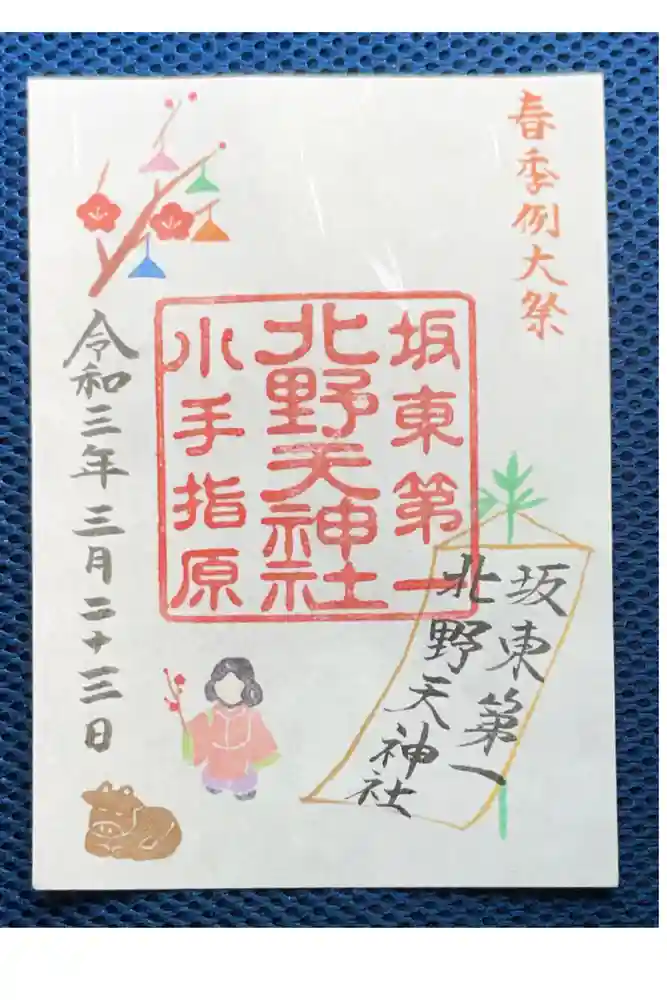 春季例大祭
坂東第一
北野天神社
小手指原
坂東第一
北野天神社
令和三年三月二十三日